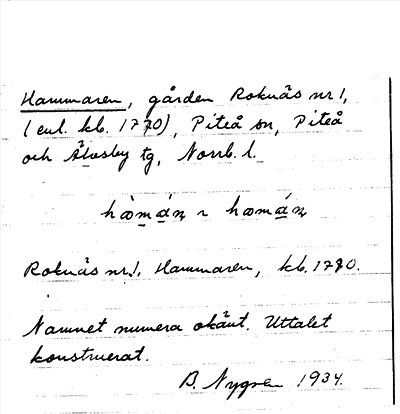 Hammaren, gården Roknäs nr 1,
(enl. kb. 1770), Piteå sn, Piteå
och Älvsby tg, Norrb. l.
Roknäs nr 1, Hammaren, kb. 1770.
Namnet numera okänt. Uttalet
konstruerat.
B. Nygren 1934.